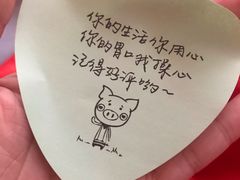 你的生活你用心
你的胃口我操心
记得好评哟~